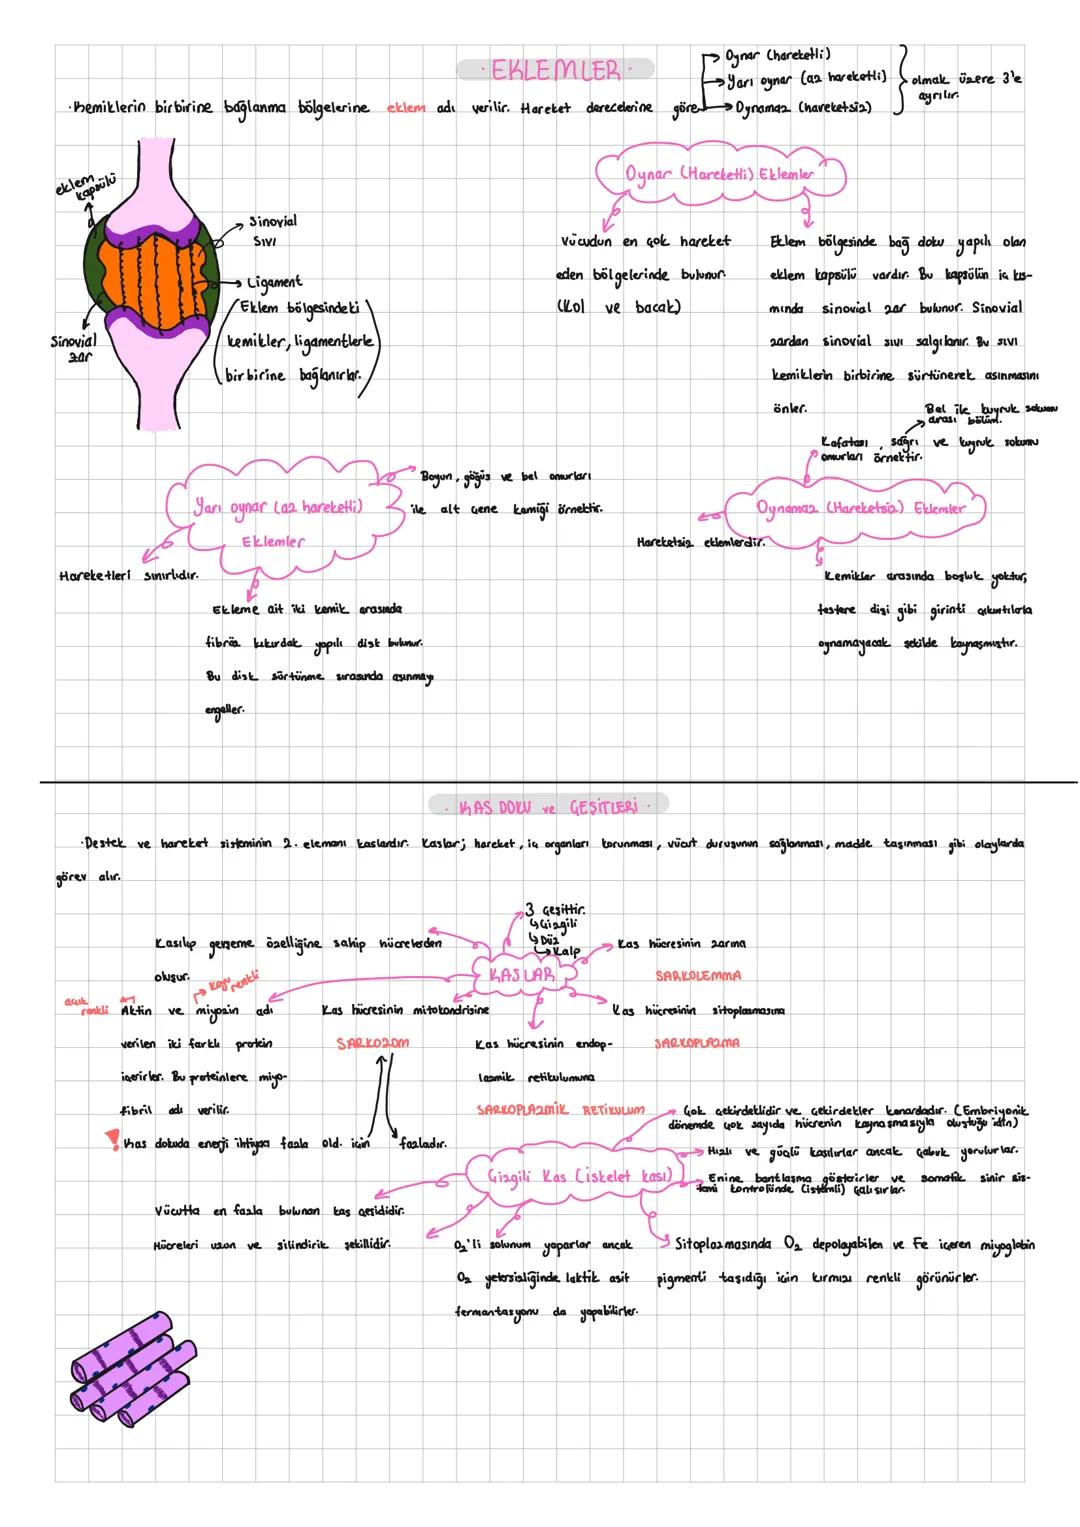 · EKLEMLER ·
·Kemiklerin birbirine bağlanma bölgelerine eklem adı verilir. Hareket derecelerine göre
Oynar (hareketli)
Yarı oynar (az hareketli)
Oynamaz (hareketsiz)
olmak üzere 3'e
ayrılır.
eklem
kapsülü
Sinovial
sıvı
Ligament
Sinovial
zar
(Eklem bölgesindeki
kemikler, ligamentlerle
birbirine bağlanırlar.)
Oynar (Hareketli) Eklemler
Vücudun en çok hareket
eden bölgelerinde bulunur.
(Kol ve bacak)
Eklem bölgesinde bağ doku yapılı olan
eklem kapsülü vardır. Bu kapsülün iç kıs-
mında sinovial zar bulunur. Sinovial
zardan sinovial sıvı salgılanır. Bu sıvı
kemiklerin birbirine sürtünerek aşınmasını
önler.
Yarı oynar (az hareketli)
Eklemler
Boyun, göğüs ve bel omurları
ile alt çene kemiği örnektir.
Hareketleri sınırlıdır.
Ekleme ait iki kemik arasında
fibröz kıkırdak yapılı disk bulunur.
Bu disk sürtünme sırasında aşınmayı
engeller.
Oynamaz (Hareketsiz) Eklemler
Bel ile kuyruk sokumu
arası bölüm.
Kafatası, sağrı ve kuyruk sokumu
omurları örnektir.
Hareketsiz eklemlerdir.
Kemikler arasında boşluk yoktur,
testere dişi gibi girinti çıkıntılarla
oynamayacak şekilde kaynaşmıştır.
· KAS DOKU ve ÇEŞİTLERİ ·
·Destek ve hareket sisteminin 2. elemanı kaslardır. Kaslar; hareket, iç organları korunması, vücut duruşunun sağlanması, madde taşınması gibi olaylarda
görev alır.
KASLAR
3 çeşittir.
Çizgili
Düz
Kalp
Kasılıp gevşeme özelliğine sahip hücrelerden
oluşur.
Kas hücresinin zarına
SARKOLEMMA
açık
renkli
koyu renkli
Aktin ve miyozin adı
verilen iki farklı protein
içerirler. Bu proteinlere miyo-
fibril adı verilir.
Kas hücresinin mitokondrisine
SARKOZOM
Kas hücresinin sitoplazmasına
SARKOPLAZMA
Kas hücresinin endop-
lazmik retikulumuna
SARKOPLAZMİK RETİKULUM
! Kas dokuda enerji ihtiyacı fazla old. için fazladır.
Çizgili Kas (iskelet kası)
Çok çekirdeklidir ve çekirdekler kenardadır. (Embriyonik
dönemde çok sayıda hücrenin kaynaşmasıyla oluştuğu için)
Hızlı ve güçlü kasılırlar ancak çabuk yorulurlar.
Enine bantlaşma gösterirler ve somatik sinir sis-
temi kontrolünde (istemli) çalışırlar.
Vücutta en fazla bulunan kas çeşididir.
Hücreleri uzun ve silindirik şekillidir.
O₂'li solunum yaparlar ancak
O₂ yetersizliğinde laktik asit
fermantasyonu da yapabilirler.
Sitoplazmasında O₂ depolayabilen ve Fe içeren miyoglobin
pigmenti taşıdığı için kırmızı renkli görünürler.